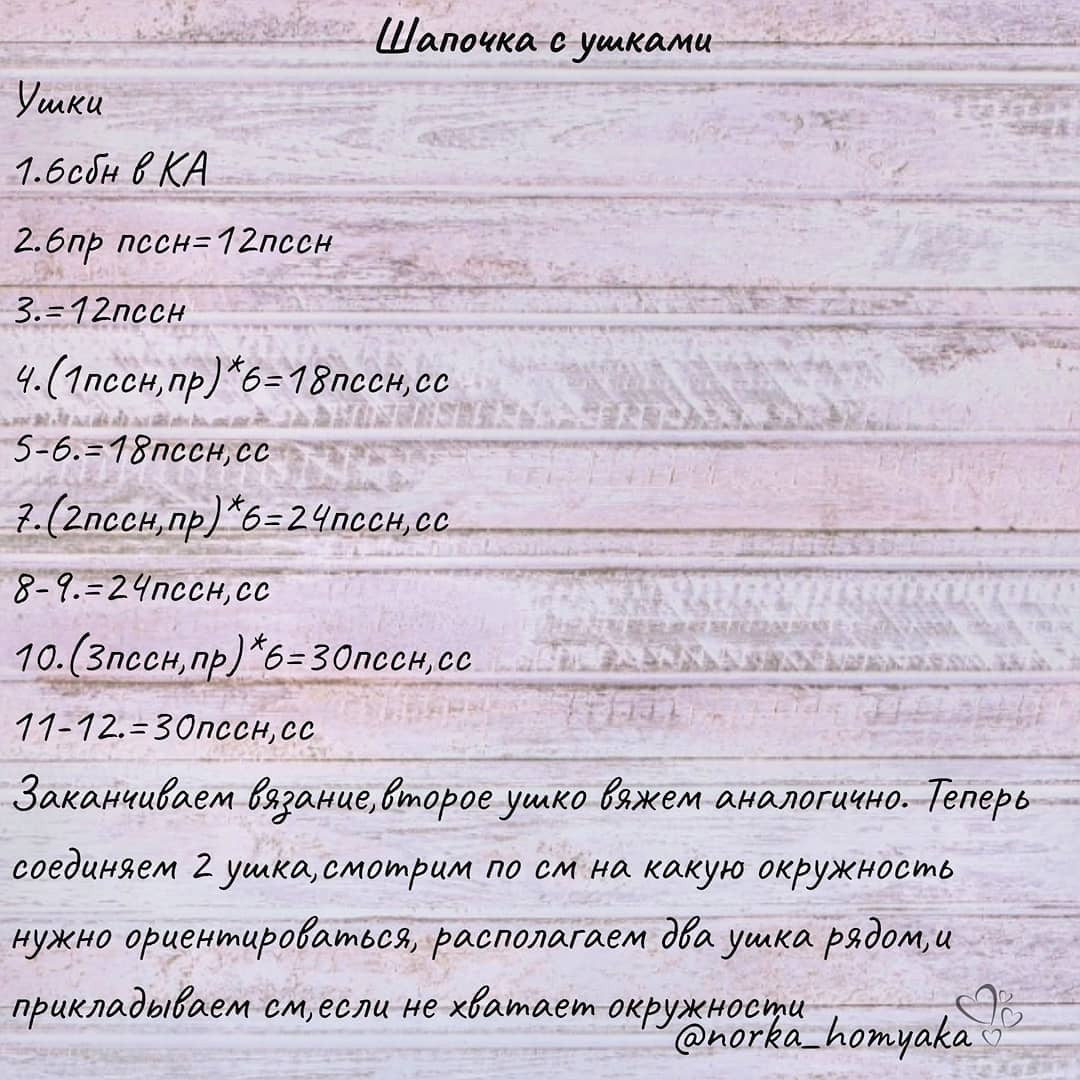 Шапочка с ушками
Ушки
1.6сбн в КА
2.6пр пссн=12пссн
3.=12пссн
4.(1пссн,пр)*6=18пссн,сс
5-6.=18пссн,сс
7.(2пссн,пр)*6=24пссн,сс
8-9.=24пссн,сс
10.(3пссн,пр)*6=30пссн,сс
11-12.=30пссн,сс
Заканчиваем вязание,второе ушко вяжем аналогично. Теперь
соединяем 2 ушка,смотрим по см на какую окружность
нужно ориентироваться, располагаем два ушка рядом,и
прикладываем см,если не хватает окружности
@norka_homyaka